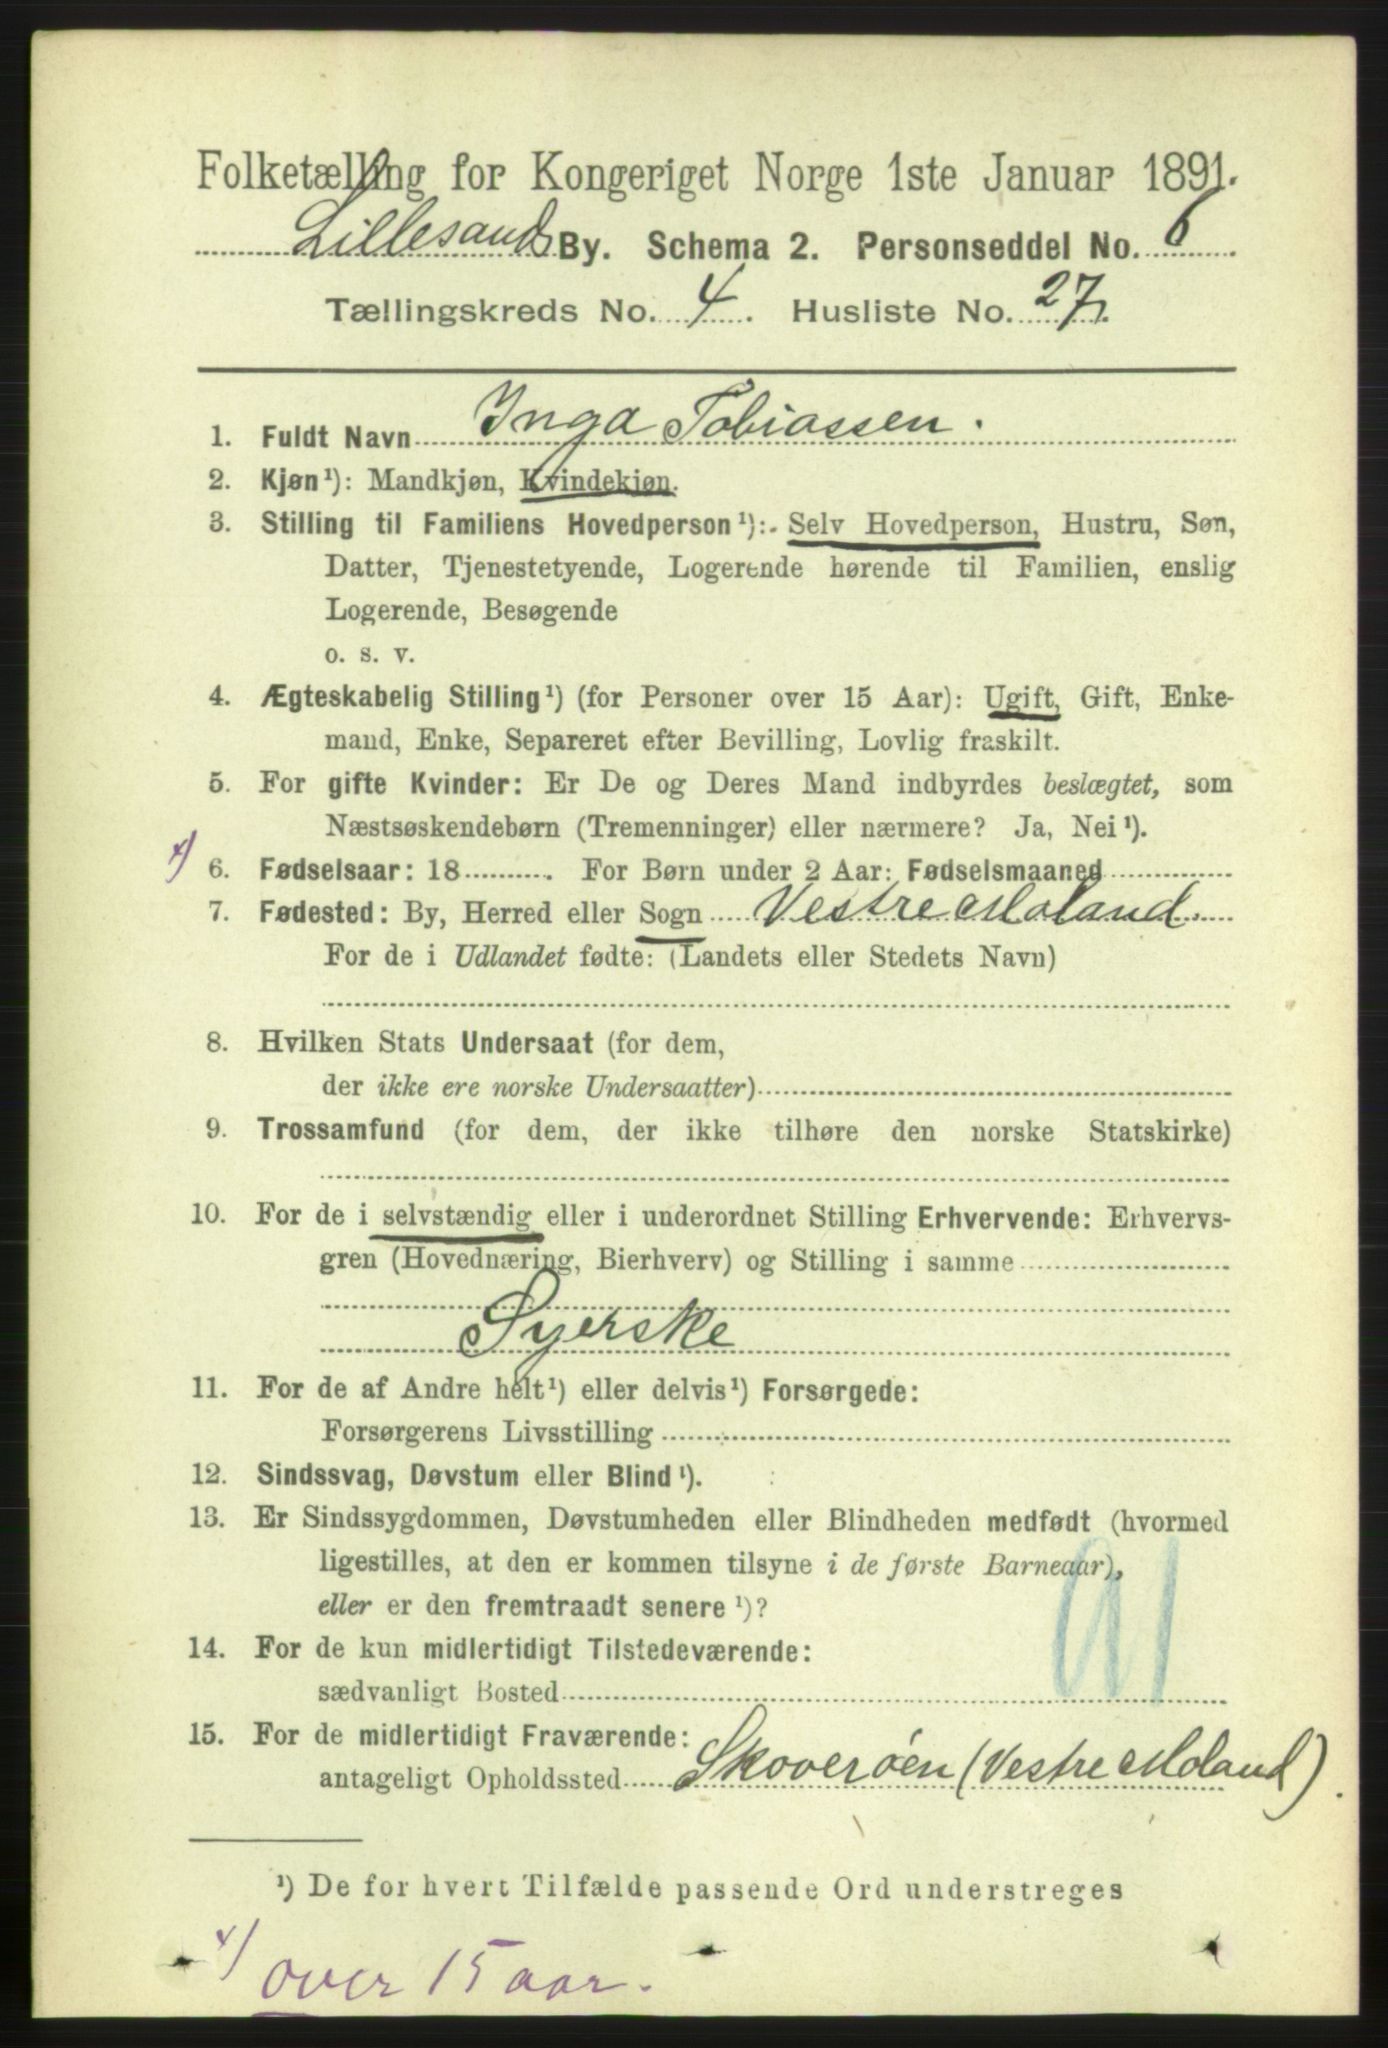 Folketælling for Kongeriget Norge 1ste Januar 1891.
Lillesands By. Schema 2. Personseddel No. 6
Tællingskreds No. 4. Husliste No. 27.
1. Fuldt Navn Inga Tobiassen.
2. Kjøn¹): Mandkjøn, Kvindekjøn.
3. Stilling til Familiens Hovedperson¹): Selv Hovedperson, Hustru, Søn,
Datter, Tjenestetyende, Logerende hørende til Familien, enslig
Logerende, Besøgende
o. s. v.
4. Ægteskabelig Stilling¹) (for Personer over 15 Aar): Ugift, Gift, Enke-
mand, Enke, Separeret efter Bevilling, Lovlig fraskilt.
5. For gifte Kvinder: Er De og Deres Mand indbyrdes beslægtet, som
Næstsøskendebørn (Tremenninger) eller nærmere? Ja, Nei¹).
x) 6. Fødselsaar: 18 . For Børn under 2 Aar: Fødselsmaaned
7. Fødested: By, Herred eller Sogn Vestre Moland.
For de i Udlandet fødte: (Landets eller Stedets Navn)
8. Hvilken Stats Undersaat (for dem,
der ikke ere norske Undersaatter)
9. Trossamfund (for dem, der ikke tilhøre den norske Statskirke)
10. For de i selvstændig eller i underordnet Stilling Erhvervende: Erhvervs-
gren (Hovednæring, Bierhverv) og Stilling i samme
Syerske
11. For de af Andre helt¹) eller delvis¹) Forsørgede:
Forsørgerens Livsstilling
12. Sindssvag, Døvstum eller Blind¹).
13. Er Sindssygdommen, Døvstumheden eller Blindheden medfødt (hvormed
ligestilles, at den er kommen tilsyne i de første Barneaar),
eller er den fremtraadt senere¹)?
91
14. For de kun midlertidigt Tilstedeværende:
sædvanligt Bosted
15. For de midlertidigt Fraværende:
antageligt Opholdssted Skoverøen (Vestre Moland).
¹) De for hvert Tilfælde passende Ord understreges
x) over 15 aar.